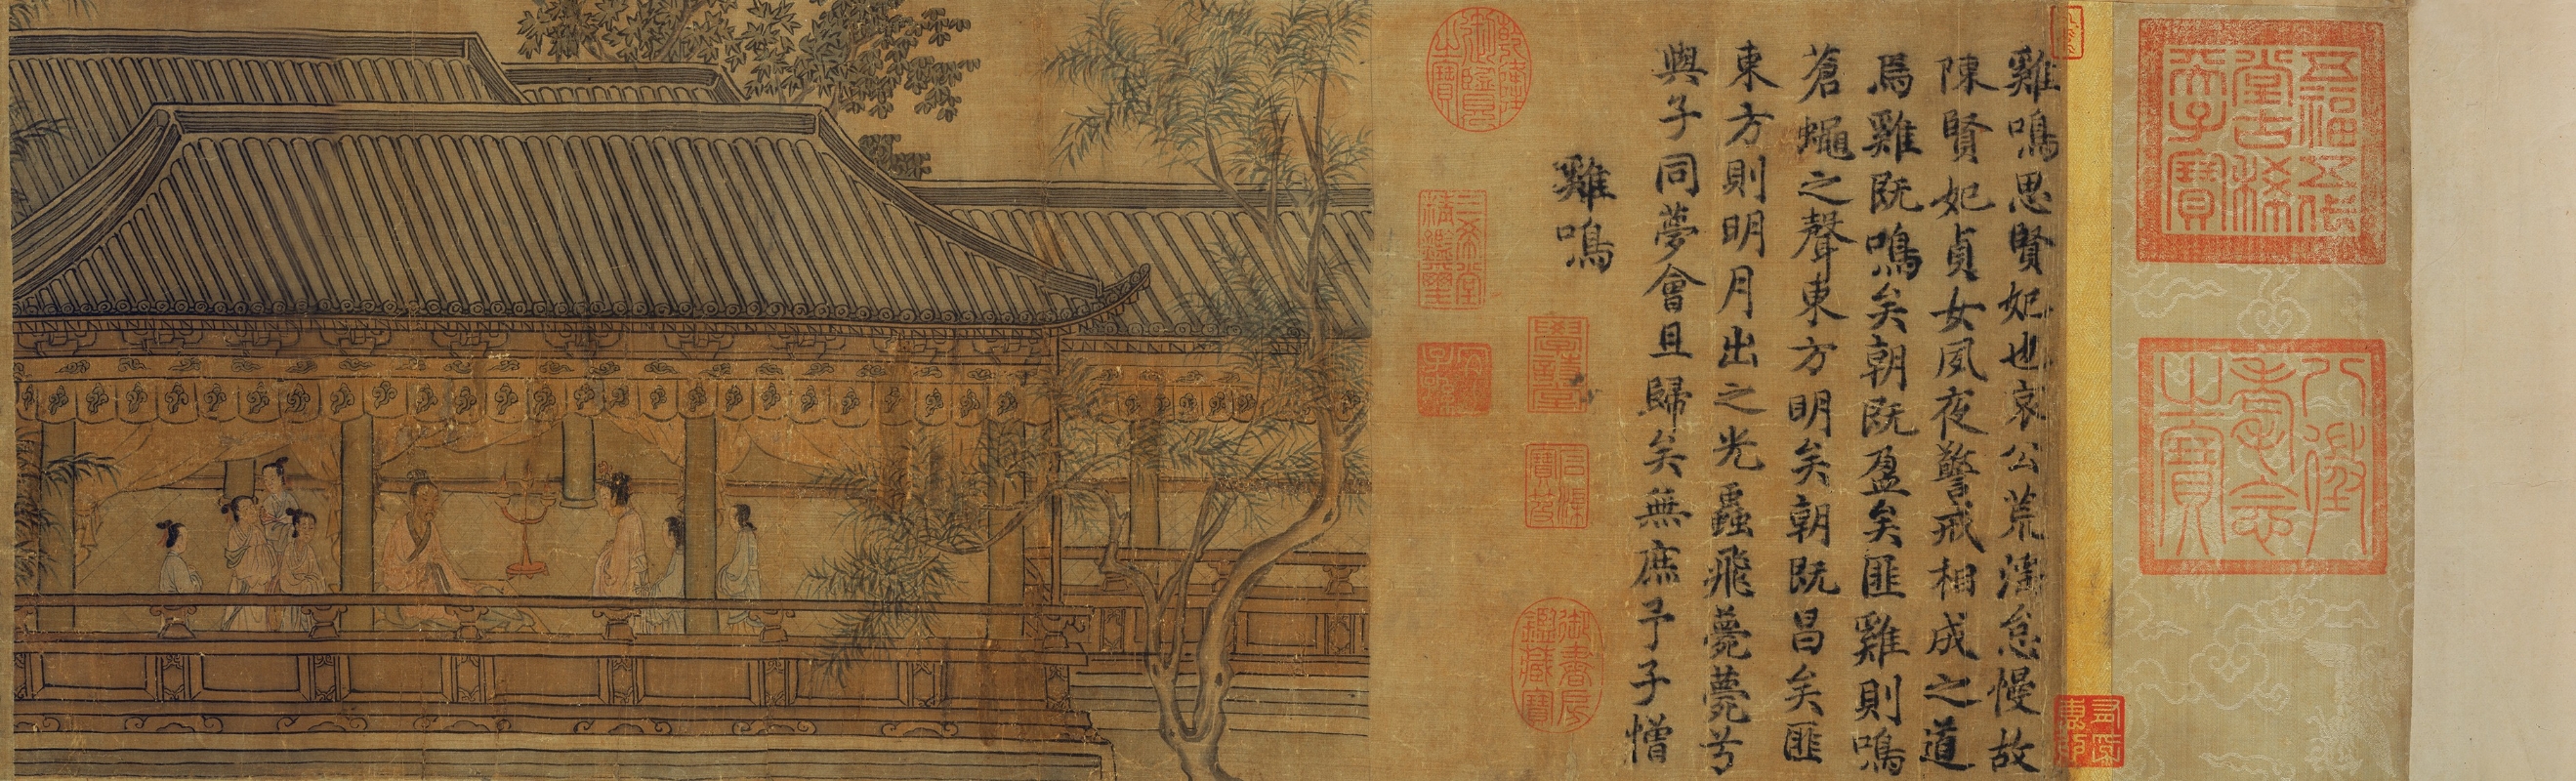 五福五代
堂古稀
天子寶
八徵
耄念
之寶
雞鳴思賢妃也哀公荒淫怠慢故
陳賢妃貞女夙夜警戒相成之道
焉雞既鳴矣朝既盈矣匪雞則鳴
蒼蠅之聲東方明矣朝既昌矣匪
東方則明月出之光蟲飛薨薨兮
與子同夢會且歸矣無庶予子憎
雞鳴
學詩堂
御書房
鑑藏寶
乾隆
御覽
之寶
三希堂
精鑑璽
宜子孫